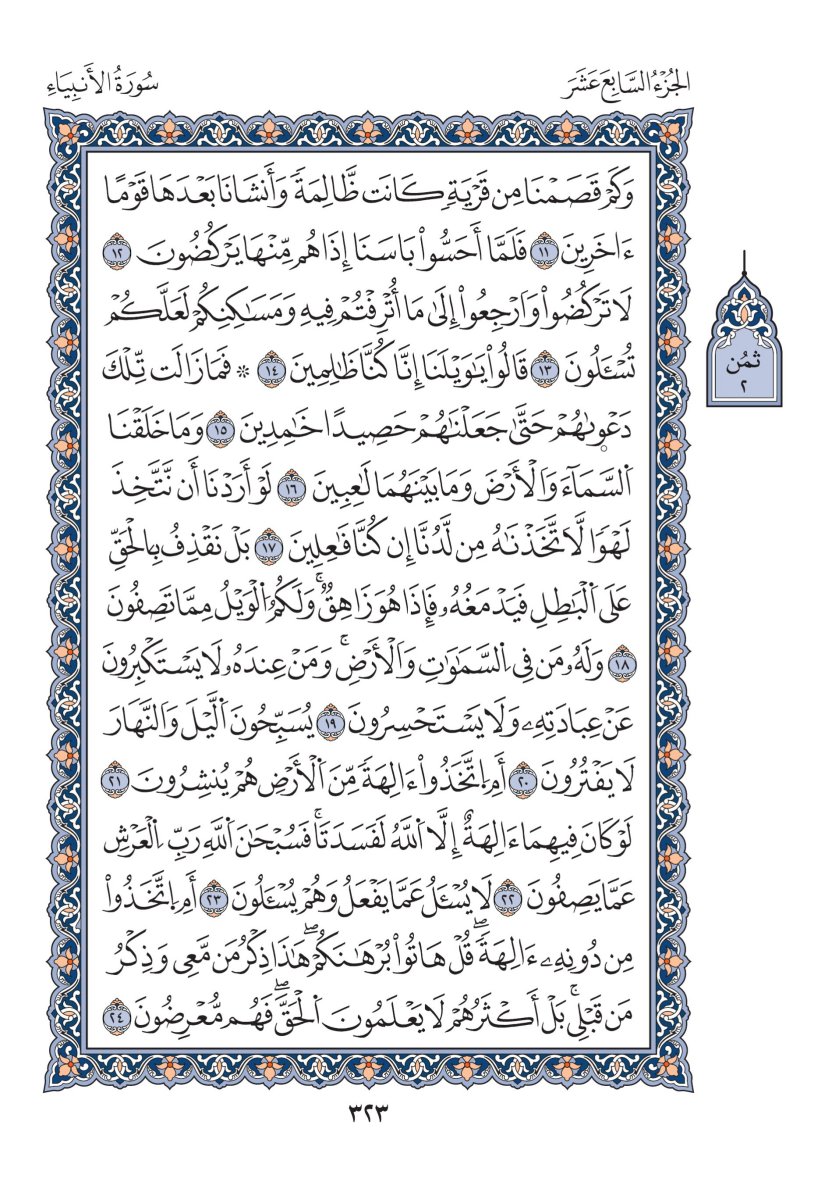 الجُزْءُ السَّابِعَ عَشَرَ
سُورَةُ الأَنبِيَاءِ
وَكَمْ قَصَمْنَا مِن قَرْيَةٖ كَانَت ظَّالِمَةٗ وَأَنشَانَا بَعْدَهَا قَوْمًا
ءَاخَرِينَ ١١ فَلَمَّا أَحَسُّواْ بَاسَنَا إِذَا هُم مِّنْهَا يَرْكُضُونَ ١٢
لَا تَرْكُضُواْ وَارْجِعُواْ إِلَىٰ مَا أُتْرِفْتُمْ فِيهِ وَمَسَٰكِنِكُمْ لَعَلَّكُمْ
تُسْـَٔلُونَ ١٣ قَالُواْ يَٰوَيْلَنَا إِنَّا كُنَّا ظَٰلِمِينَ ١٤ * فَمَا زَالَت تِّلْكَ
دَعْوىٰهُمْ حَتَّىٰ جَعَلْنَٰهُمْ حَصِيدًا خَٰمِدِينَ ١٥ وَمَا خَلَقْنَا
اَلسَّمَآءَ وَالْأَرْضَ وَمَا بَيْنَهُمَا لَٰعِبِينَ ١٦ لَوْ أَرَدْنَا أَن نَّتَّخِذَ
لَهْوٗا لَّاتَّخَذْنَٰهُ مِن لَّدُنَّا إِن كُنَّا فَٰعِلِينَ ١٧ بَلْ نَقْذِفُ بِالْحَقِّ
عَلَى اَلْبَٰطِلِ فَيَدْمَغُهُۥ فَإِذَا هُوَ زَاهِقٞۚ وَلَكُمُ اُلْوَيْلُ مِمَّا تَصِفُونَ
١٨ وَلَهُۥ مَن فِي اِلسَّمَٰوَٰتِ وَالْأَرْضِۚ وَمَنْ عِندَهُۥ لَا يَسْتَكْبِرُونَ
عَنْ عِبَادَتِهِۦ وَلَا يَسْتَحْسِرُونَ ١٩ يُسَبِّحُونَ اَلَّيْلَ وَالنَّهَارَ
لَا يَفْتُرُونَ ٢٠ أَمِ اِتَّخَذُواْ ءَالِهَةٗ مِّنَ اَلْأَرْضِ هُمْ يُنشِرُونَ ٢١
لَوْ كَانَ فِيهِمَا ءَالِهَةٌ إِلَّا اَللَّهُ لَفَسَدَتَاۚ فَسُبْحَٰنَ اَللَّهِ رَبِّ اِلْعَرْشِ
عَمَّا يَصِفُونَ ٢٢ لَا يُسْـَٔلُ عَمَّا يَفْعَلُ وَهُمْ يُسْـَٔلُونَ ٢٣ أَمِ اِتَّخَذُواْ
مِن دُونِهِۦ ءَالِهَةٗۖ قُلْ هَاتُواْ بُرْهَٰنَكُمْۖ هَٰذَا ذِكْرُ مَن مَّعِي وَذِكْرُ
مَن قَبْلِيۚ بَلْ أَكْثَرُهُمْ لَا يَعْلَمُونَ اَلْحَقَّۖ فَهُم مُّعْرِضُونَ ٢٤
ثمُن
٢
٣٢٣